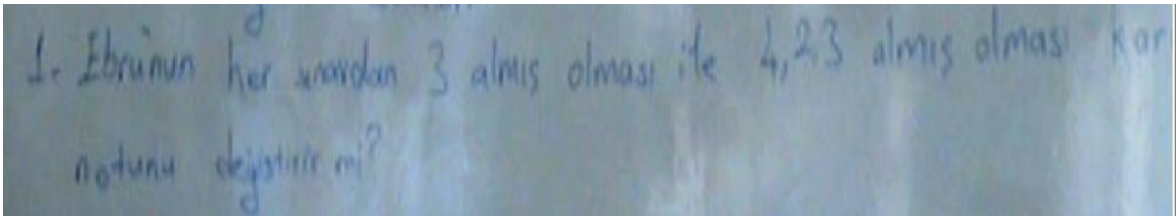 1. Ebru'nun her sınavdan 3 almış olması ile 4,2,3 almış olması kar
notunu değiştirir mi?